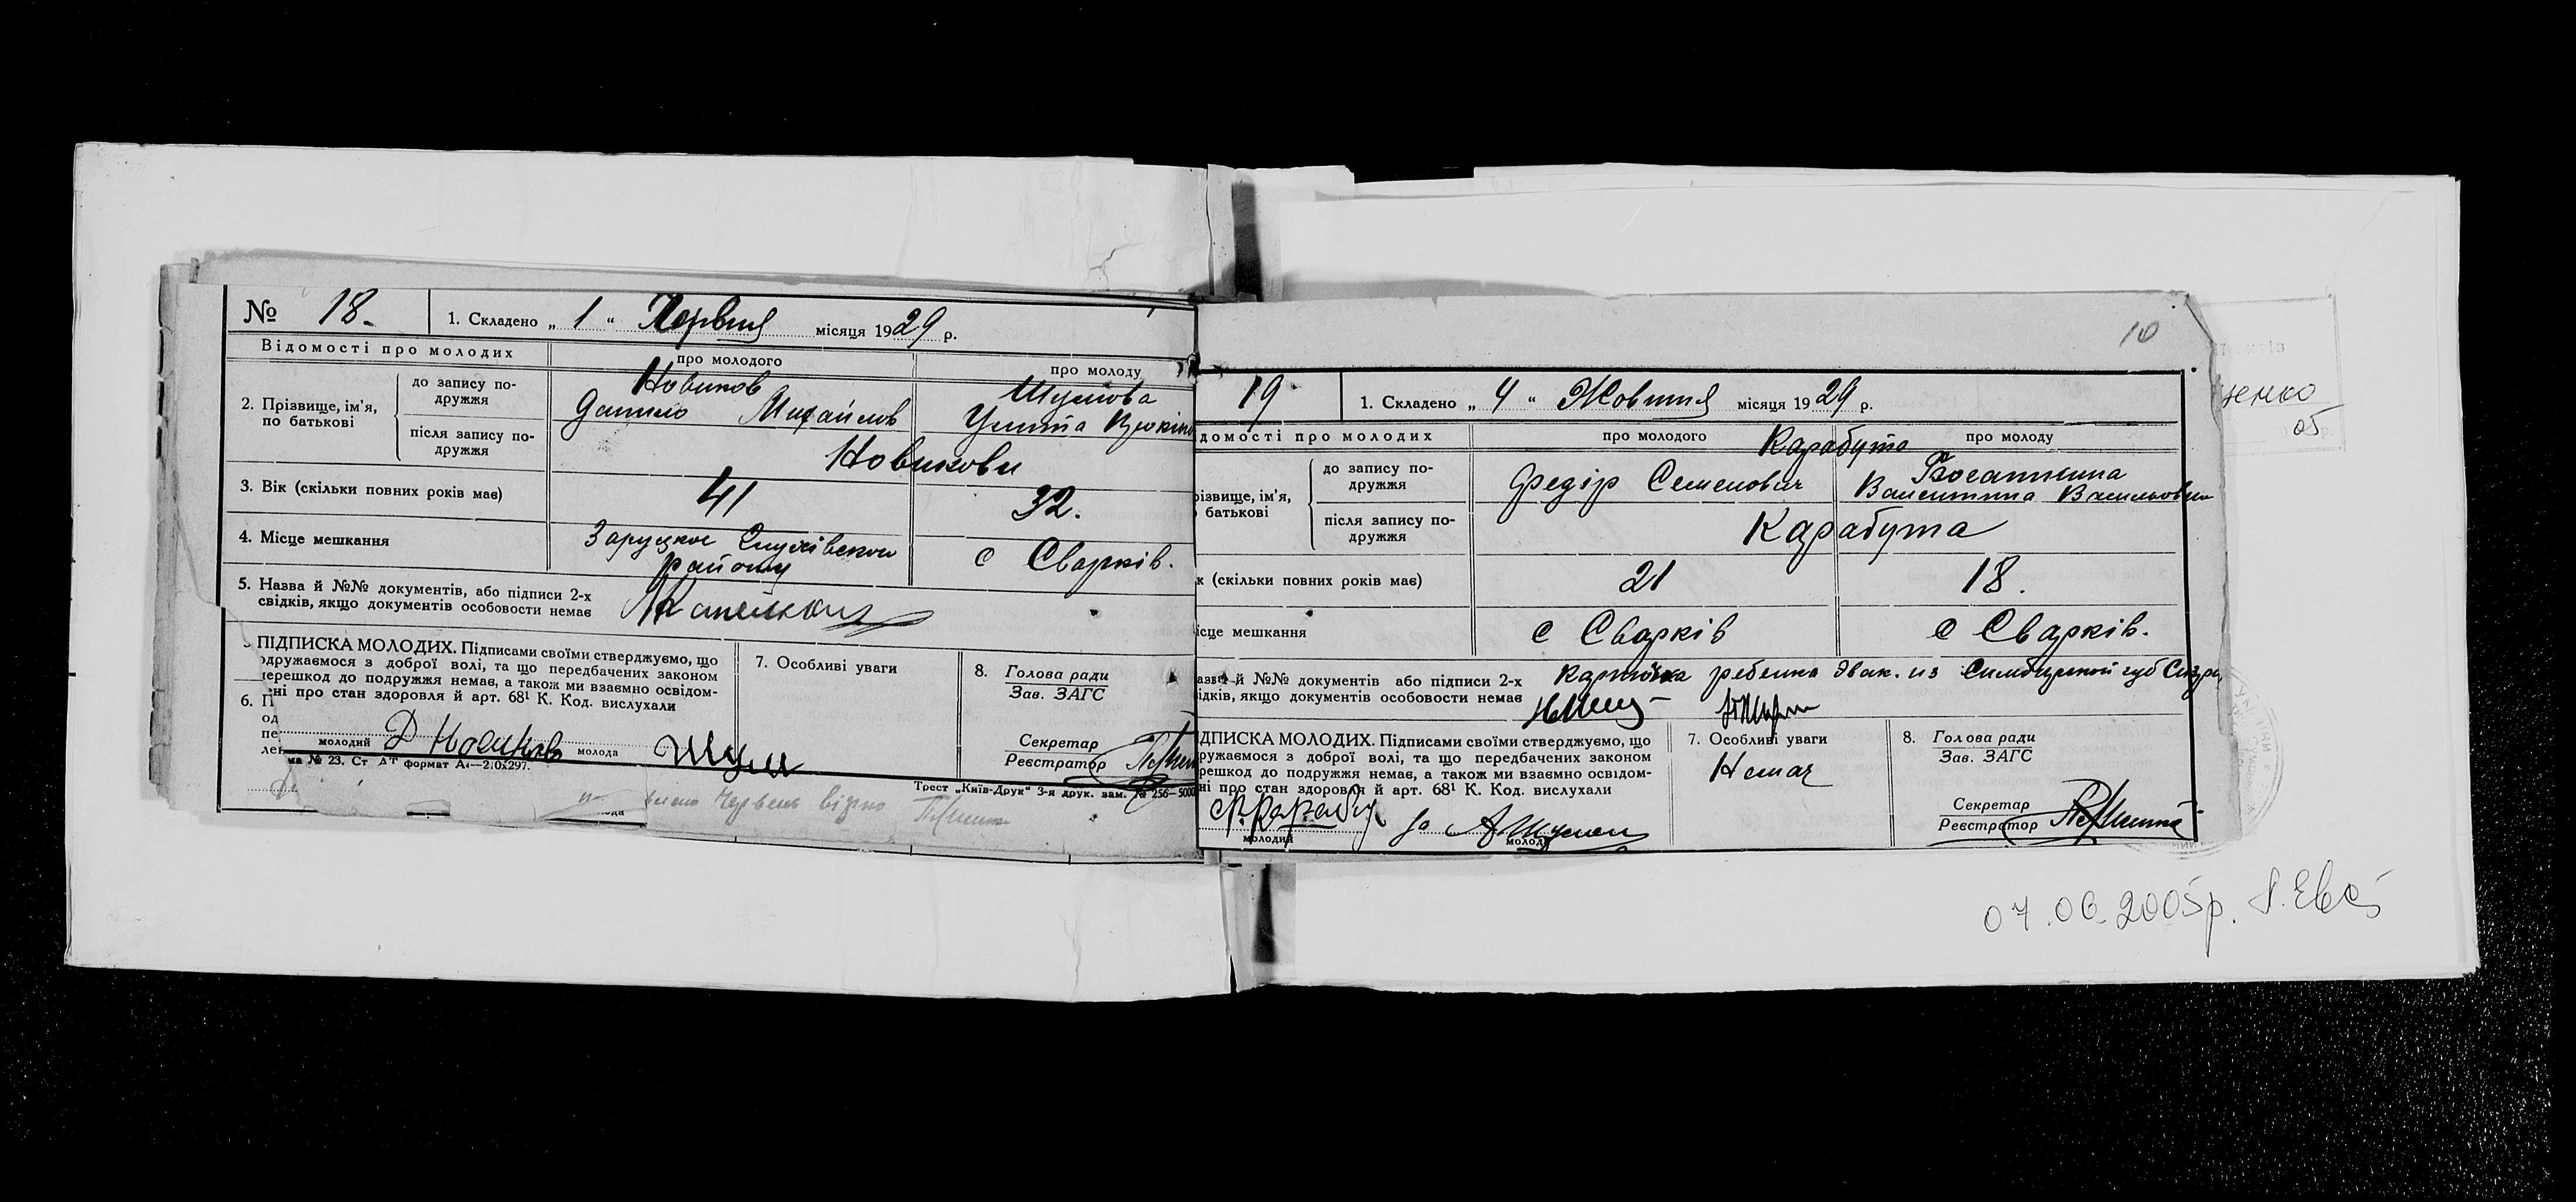 № 18.
1. Складено „ 1 “ Червня місяця 1929 р.
Відомості про молодих
про молодого
про молоду
2. Прізвище, ім'я, по батькові
до запису подружжя
Новиков
Данило Михайлов
Шумова
Улита
після запису подружжя
Новикови
3. Вік (скільки повних років має)
41
32.
4. Місце мешкання
Заруцкое Глухівского
району
с Сварків.
5. Назва й №№ документів, або підписи 2-х
свідків, якщо документів особовости немає
ПІДПИСКА МОЛОДИХ. Підписами своїми стверджуємо, що
одружаємося з доброї волі, та що передбачених законом
перешкод до подружжя немає, а також ми взаємно освідом-
ені про стан здоровля й арт. 68¹ К. Код. вислухали
6. П
од
пе
лен
молодий Д Новиков молода Шум
7. Особливі уваги
8. Голова ради
Зав. ЗАГС
Секретар
Реєстратор
ма № 23. Ст АТ формат А₄—210х297.
Трест „Київ-Друк“ 3-я друк. зам. № 256—5000
Червень вірно
10
19
1. Складено „ 4 “ Жовтня місяця 1929 р.
домості про молодих
про молодого
про молоду
різвище, ім'я,
батькові
до запису подружжя
Карабута
Федір Семенович
Богаткина
Валентина Васильовна
після запису подружжя
Карабута
к (скільки повних років має)
21
18.
ісце мешкання
с Сварків
с Сварків.
азва й №№ документів або підписи 2-х
ідків, якщо документів особовости немає
Карточка ребенка Эвак. из Симбирской губ Сизра
ДПИСКА МОЛОДИХ. Підписами своїми стверджуємо, що
ружаємося з доброї волі, та що передбачених законом
решкод до подружжя немає, а також ми взаємно освідом-
ні про стан здоровля й арт. 68¹ К. Код. вислухали
молодий
за
молода
7. Особливі уваги
Немає
8. Голова ради
Зав. ЗАГС
Секретар
Реєстратор
енко
05 р.
07.06.2005р.